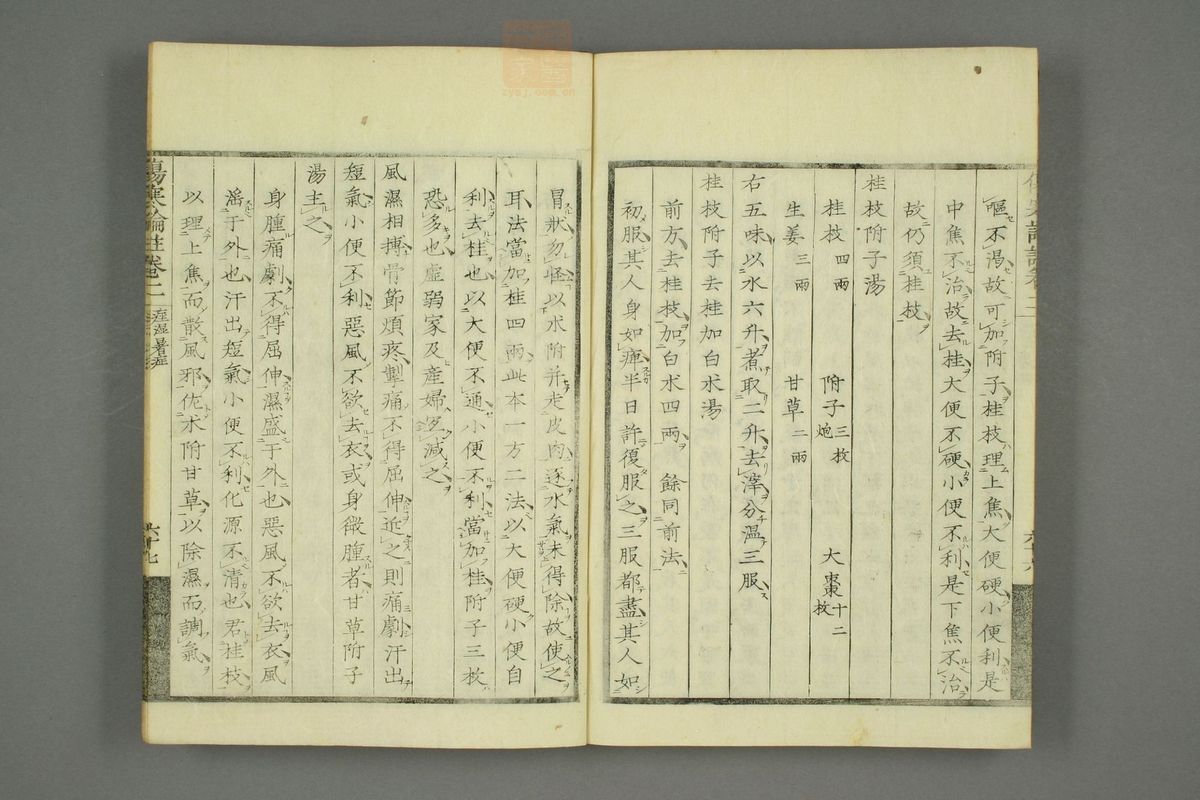 嘔不渴故可加附子桂枝理上焦大便硬小便利是
中焦不治故去桂大便不硬小便不利是下焦不治
故仍須桂枝
桂枝附子湯
桂枝四兩 附子三枚炮 大棗十二枚
生姜三兩 甘草二兩
右五味以水六升煮取二升去滓分温三服
桂枝附子去桂加白朮湯
前方去桂枝加白朮四兩餘同前法
初服其人身如痺半日許復服之三服都盡其人如
冒狀勿怪以朮附并走皮肉逐水氣未得除故使之
耳法當加桂四兩此本一方二法以大便硬小便自
利去桂也以大便不通小便不利當加桂附子三枚
恐多也虛弱家及產婦減之
風濕相搏骨節煩疼掣痛不得屈伸近之則痛劇汗出
短氣小便不利惡風不欲去衣或身微腫者甘草附子
湯主之
身腫痛劇不得屈伸濕盛于外也惡風不欲去衣風
滛于外也汗出短氣小便不利化源不清也君桂枝
以理上焦而散風邪佐朮附甘草以除濕而調氣
傷寒論註卷二 痙濕暑症 六十七
zysj.com.cn